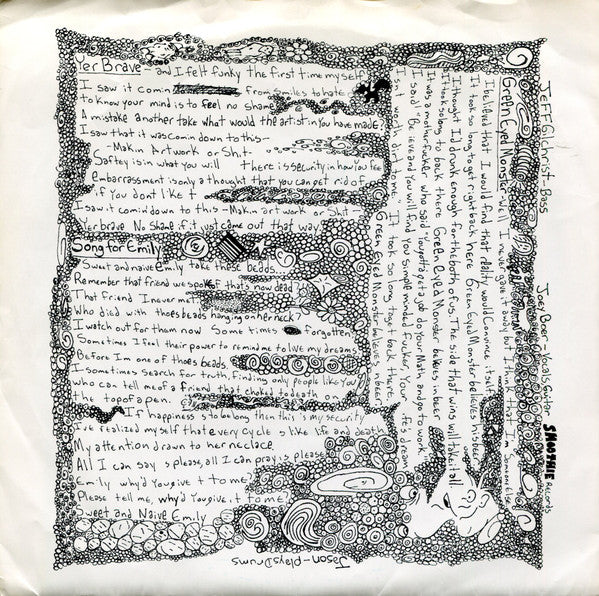 Yer Brave - and I felt funky the first time myself
I saw it comin from smiles to hate
to know your mind is to feel no shame
A mistake another take what would the artist in you have made?
I saw that it was comin down to this-
-Makin Artwork or Shit-
Saftey is in what you will There is security in how you feel
embarrassment is only a thought that you can get rid of
if you dont like t
I saw it comin down to this-Makin art work or Shit-
Yer brave No shame if it just came out that way.
Song for Emily
Sweet and naive Emily take these beads...
Remember that friend we spoke of thats now dead?
That friend I never met?
Who died with thoes beads hanging on her neck?
I watch out for them now Some times forgotten
Sometimes I feel their power to remind me to live my dreams
Before Im one of thoes beads.
I sometimes search for truth finding only people like you
who can tell me of a friend that choked to death on
the top of a pen.
If happiness is to be long then this is my security
I've realized my self that every cycle is like life and death
My attention drawn to her neclace
All I can say is please, all I can pray is please
Emily why'd You give it to me?
Please tell me, why'd You give it to me?
Sweet and Naive Emily
Green Eyed Monster-Well I never gave it away but I think that I'm someone else
I believed that I would find that reality would convince itself
It took so long to get right back here Green Eyed Monster believes his beer
I thought I'd drunk enough for the both of us. The side that wins will take it all
It took so long to back there Green Eyed Monster believes in beer
I was a motherfucker who said "You gotta get a job do your Math and go to work
I said "Believe and You will find You simple minded fucker, Your dream
Isnt worth dirt to me It took so long to get back here,
Green Eyed Monster believes in beer
Jeff Gilchrist-Bass
Joey Boer-Vocals Guitar
SMOOTHIE Records
Jason-plays Drums